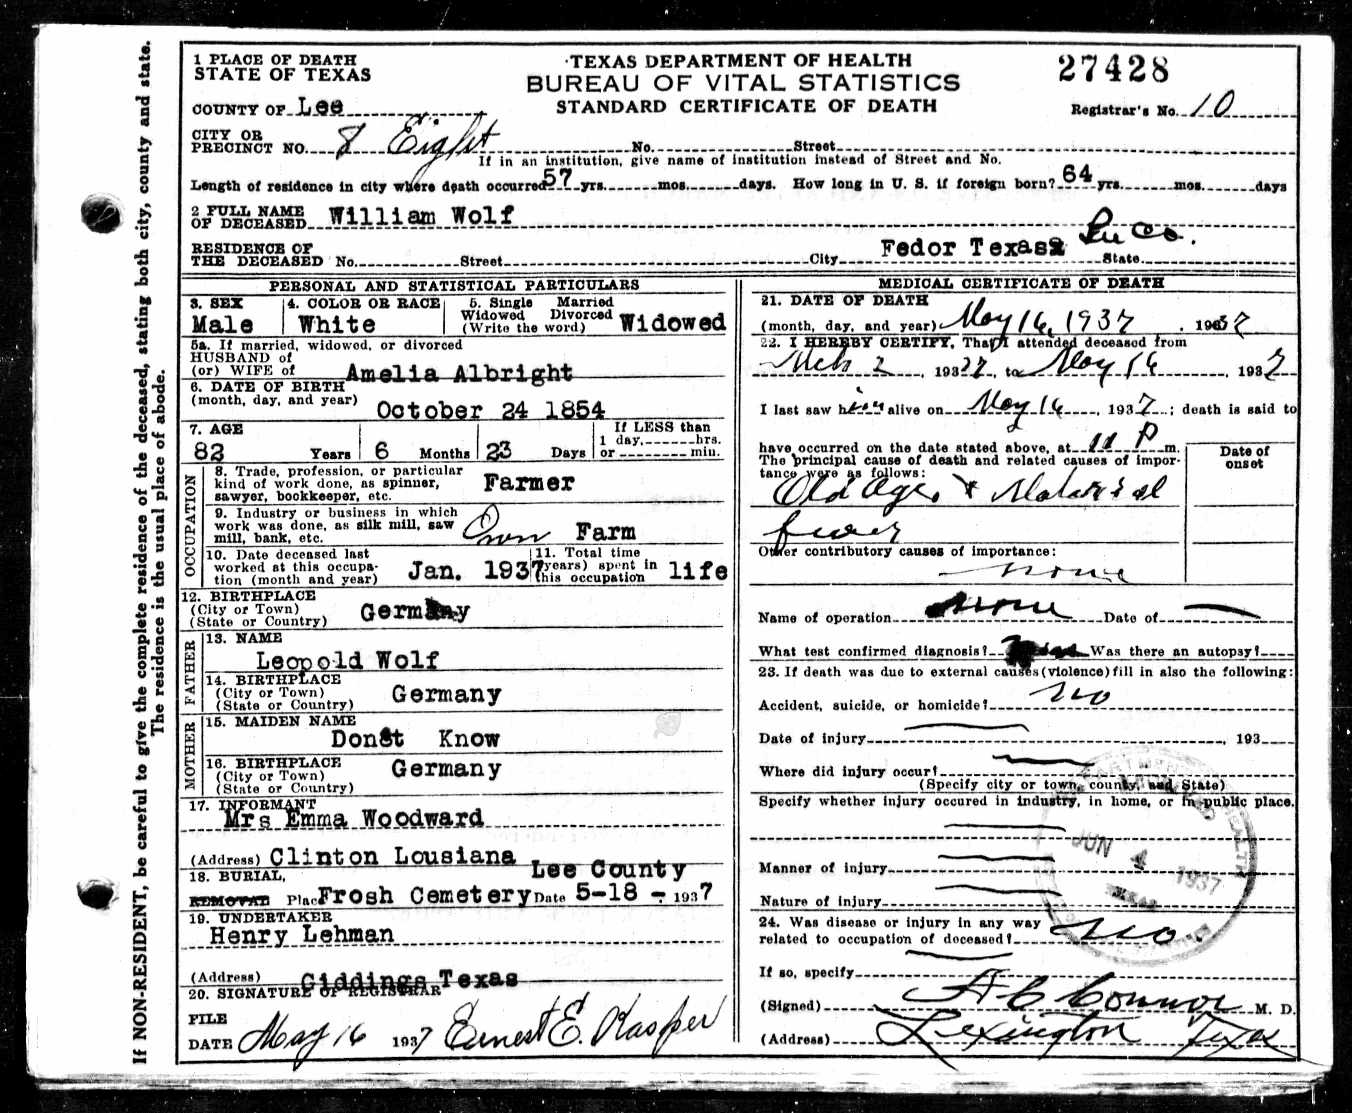 1 PLACE OF DEATH
STATE OF TEXAS
COUNTY OF Lee
CITY OR
PRECINCT NO. 8 Eight No. Street
If in an institution, give name of institution instead of Street and No.
TEXAS DEPARTMENT OF HEALTH
BUREAU OF VITAL STATISTICS
STANDARD CERTIFICATE OF DEATH
27428
Registrar's No. 10
Length of residence in city where death occurred 57 yrs. mos. days. How long in U. S. if foreign born? 64 yrs. mos. days
2 FULL NAME
OF DECEASED William Wolf
RESIDENCE OF
THE DECEASED No. Street City Fedor Texas Lee Co. State
PERSONAL AND STATISTICAL PARTICULARS
3. SEX Male
4. COLOR OR RACE White
5. Single Married
Widowed Divorced
(Write the word) Widowed
5a. If married, widowed, or divorced
HUSBAND of
(or) WIFE of Amelia Albright
6. DATE OF BIRTH
(month, day, and year) October 24 1854
7. AGE
82 Years 6 Months 23 Days
If LESS than
1 day, hrs.
or min.
OCCUPATION
8. Trade, profession, or particular
kind of work done, as spinner,
sawyer, bookkeeper, etc. Farmer
9. Industry or business in which
work was done, as silk mill, saw
mill, bank, etc. Own Farm
10. Date deceased last
worked at this occupa-
tion (month and year) Jan. 1937
11. Total time
(years) spent in
this occupation life
12. BIRTHPLACE
(City or Town)
(State or Country) Germany
FATHER
13. NAME
Leopold Wolf
14. BIRTHPLACE
(City or Town)
(State or Country) Germany
MOTHER
15. MAIDEN NAME
Dont Know
16. BIRTHPLACE
(City or Town)
(State or Country) Germany
17. INFORMANT
Mrs Emma Woodward
(Address) Clinton Lousiana
18. BURIAL, Lee County
REMOVAL Place Frosh Cemetery Date 5-18 - 1937
19. UNDERTAKER
Henry Lehman
(Address) Giddings Texas
20. SIGNATURE OF REGISTRAR
FILE
DATE May 16 1937 Ernest E. Kasper
MEDICAL CERTIFICATE OF DEATH
21. DATE OF DEATH
(month, day, and year) May 16, 1937 , 1937
22. I HEREBY CERTIFY, That I attended deceased from
2 , 1937, to May 16 , 1937
I last saw him alive on May 16 , 1937; death is said to
have occurred on the date stated above, at 11 P m.
The principal cause of death and related causes of impor-
tance were as follows:
Old Age & Malarial
fever
Date of
onset
Other contributory causes of importance:
none
Name of operation none Date of
What test confirmed diagnosis? Was there an autopsy?
23. If death was due to external causes (violence) fill in also the following:
Accident, suicide, or homicide? no
Date of injury , 193
Where did injury occur?
(Specify city or town, county, and State)
Specify whether injury occured in industry, in home, or in public place.
Manner of injury
Nature of injury
24. Was disease or injury in any way
related to occupation of deceased? no.
If so, specify
(Signed) A C Connor M. D.
(Address) Lexington Texas
JUN 4 1937
TEXAS
If NON-RESIDENT, be careful to give the complete residence of the deceased, stating both city, county and state.
The residence is the usual place of abode.